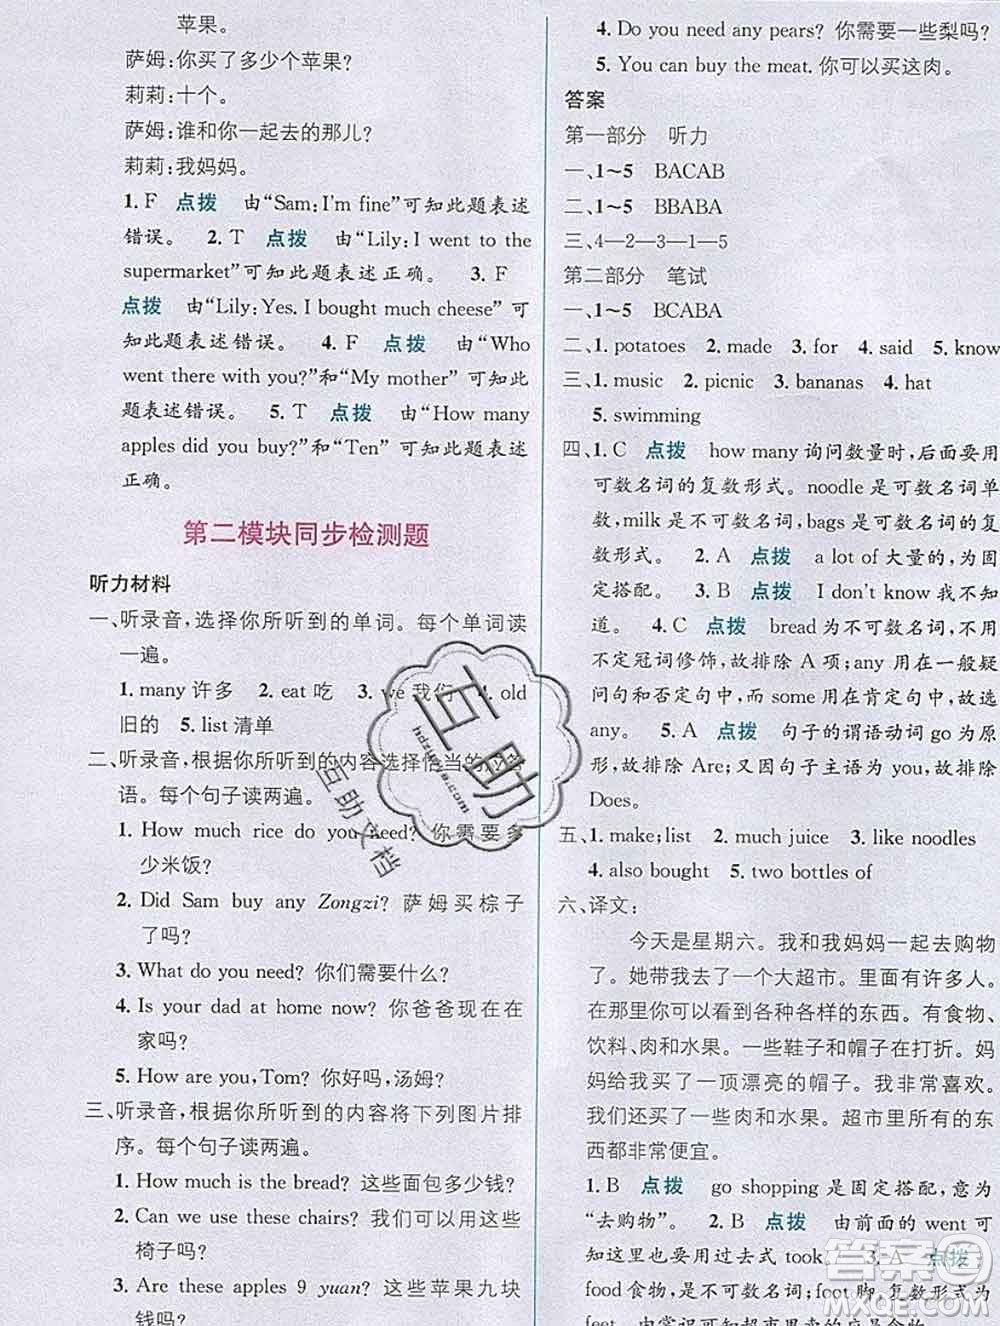 苹果。
萨姆:你买了多少个苹果?
莉莉:十个。
萨姆:谁和你一起去的那儿?
莉莉:我妈妈。
1. F 点拨 由“Sam: I'm fine”可知此题表述
错误。 2. T 点拨 由“Lily: I went to the
supermarket”可知此题表述正确。 3. F
点拨 由“Lily: Yes. I bought much cheese” 可
知此题表述错误。 4. F 点拨 由“Who
went there with you?”和“My mother”可知此
题表述错误。 5. T 点拨 由“How many
apples did you buy?”和“Ten”可知此题表述
正确。
第二模块同步检测题
听力材料
一、听录音,选择你所听到的单词。每个单词读
一遍。
1. many 许多 2. eat 吃 3. we 我们 4. old
旧的 5. list 清单
二、听录音,根据你所听到的内容选择恰当的应答
语。每个句子读两遍。
1. How much rice do you need? 你需要多
少米饭?
2. Did Sam buy any Zongzi? 萨姆买粽子
了吗?
3. What do you need? 你们需要什么?
4. Is your dad at home now? 你爸爸现在在
家吗?
5. How are you, Tom? 你好吗,汤姆?
三、听录音,根据你所听到的内容将下列图片排
序。每个句子读两遍。
1. How much is the bread? 这些面包多少钱?
2. Can we use these chairs? 我们可以用这些
椅子吗?
3. Are these apples 9 yuan? 这些苹果九块
钱吗?
4. Do you need any pears? 你需要一些梨吗?
5. You can buy the meat. 你可以买这肉。
答案
第一部分 听力
一、1~5 BACAB
二、1~5 BBABA
三、4—2—3—1—5
第二部分 笔试
一、1~5 BCABA
二、1. potatoes 2. made 3. for 4. said 5. know
三、1. music 2. picnic 3. bananas 4. hat
5. swimming
四、1. C 点拨 how many 询问数量时,后面要用
可数名词的复数形式。noodle 是可数名词单
数, milk 是不可数名词, bags 是可数名词的复
数形式。 2. A 点拨 a lot of 大量的,为固
定搭配。 3. B 点拨 I don't know 我不知
道。 4. C 点拨 bread 为不可数名词,不用
不定冠词修饰,故排除 A 项; any 用在一般疑
问句和否定句中,而 some 用在肯定句中,故选
any。 5. A 点拨 句子的谓语动词 go 为原
形,故排除 Are;又因句子主语为 you,故排除
Does。
五、1. make; list 2. much juice 3. like noodles
4. also bought 5. two bottles of
六、译文:
今天是星期六。我和我妈妈一起去购物
了。她带我去了一个大超市。里面有许多人。
在那里你可以看到各种各样的东西。有食物、
饮料、肉和水果。一些鞋子和帽子在打折。妈
妈给我买了一顶漂亮的帽子。我非常喜欢。
我们还买了一些肉和水果。超市里所卖的东
西都非常便宜。
1. B 点拨 go shopping 是固定搭配,意为
“去购物”。 2. B 点拨 由前面的 went 可
知这里也要用过去式 took。 3. A 点拨
food 食物,是不可数名词; foot 脚,复数形式为
互助
hdzuoye.com
互助文档
答案圈
MXQE.COM